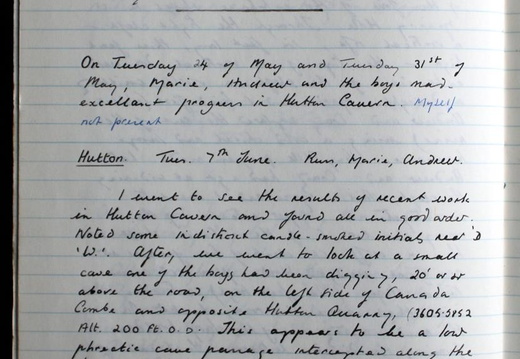 On Tuesday 24 of May and Tuesday 31st of
May, Marie, Andrew and the boys mad
excellent progress in Hutton Cavern. Myself
not present
Hutton. Tues. 7th June. Marie, Andrew.
I went to see the results of recent work
in Hutton Cavern and found all in good order.
Noted some indistinct candle-smoked initials near 'D
'W.'. After, we went to look at a small
cave one of the boys had been digging, 20' or so
above the road, on the left side of Canada
Combe and opposite Hutton Quarry, (3605.5852
Alt. 200 Ft. O.D. This appears to be a low
phreatic cave passage intercepted along the